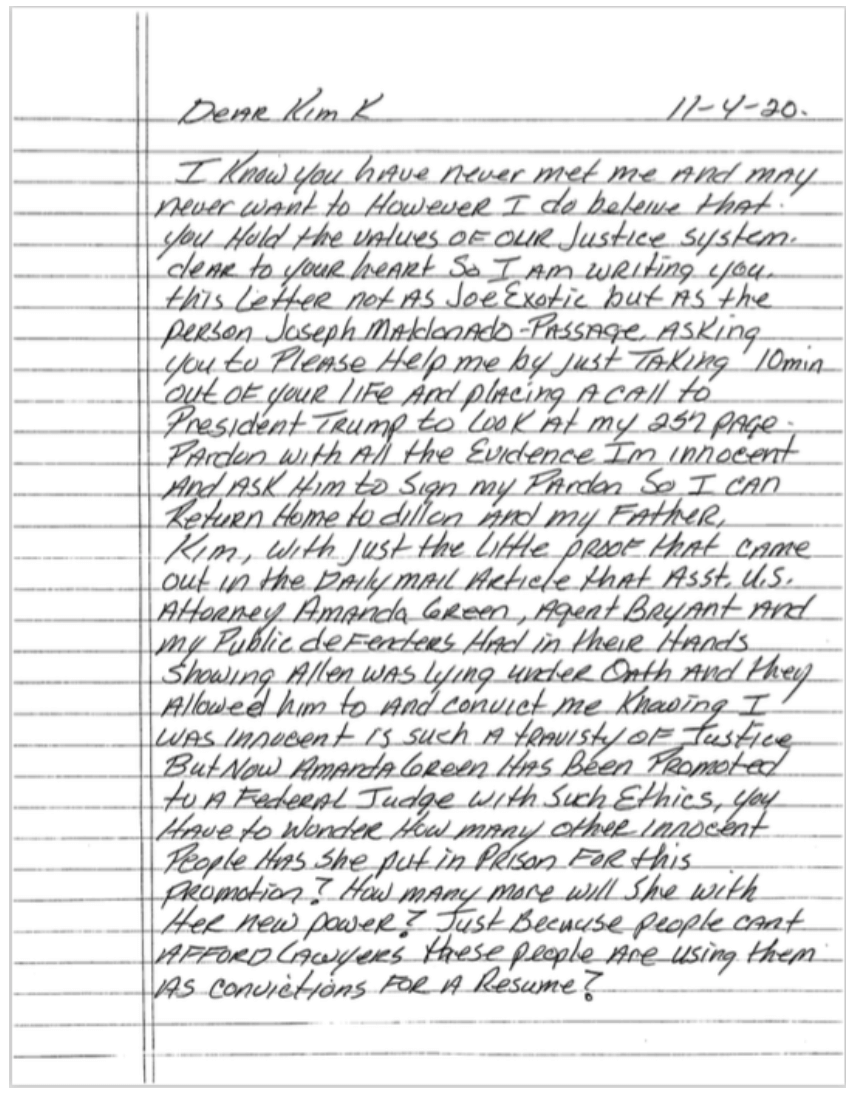 Dear Kim K 11-4-20.
I Know you have never met me and may
never want to However I do beleive that
you Hold the values of our Justice system.
dear to your heart So I am writing you.
this Letter not as Joe Exotic but as the
person Joseph Maldonado-Passage, asking
you to Please Help me by just Taking 10min
out of your life and placing a call to
President Trump to look at my 257 page
Pardon with all the Evidence Im innocent
and ask Him to Sign my Pardon So I can
Return Home to dillon and my Father,
Kim, with just the little proof that came
out in the Daily mail Article that Asst. U.S.
Attorney Amanda Green, Agent Bryant and
my Public defenders Had in their Hands
Showing Allen was lying under Oath and they
Allowed him to and convict me Knowing I
was innocent is such a travisty of Justice
But Now Amanda Green Has Been Promoted
to a Federal Judge with Such Ethics, you
Have to Wonder How many other innocent
People Has She put in Prison For this
promotion? How many more will She with
Her new power? Just Because people cant
afford Lawyers these people are using them
as convictions for a Resume?